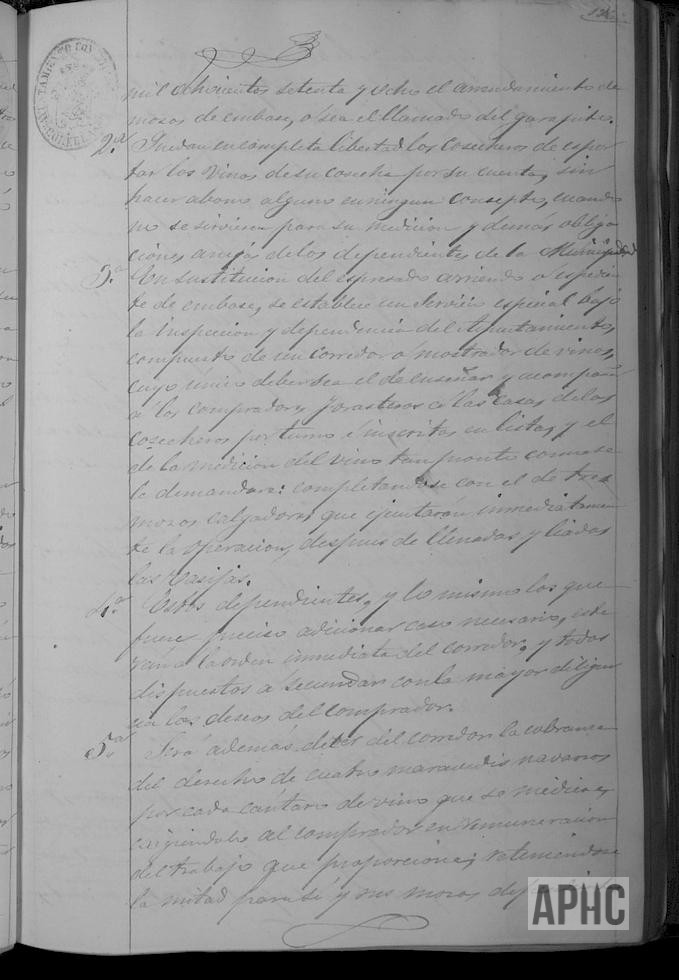 mil ochocientos setenta y ocho el arrendamiento de
mozos de embase, o sea el llamado del garapito.
2.ª Quedan en completa libertad los cosecheros de espor
tar los vinos de su cosecha por su cuenta, sin
hacer abono alguno en ningun consepto, cuando
no se sirviesen para su medicion y demás obliga
ciones anejas de los dependientes de la Municipalidad
3.ª En sustitucion del espresado arriendo o espedien
te de embase, se establece un servicio especial bajo
la inspeccion y dependencia del Ayuntamiento,
compuesto de un corredor o mostrador de vinos,
cuyo unico deber sea el de enseñar y acompañar
a los compradores forasteros a las casas de los
cosecheros por turno é inscritos en lista, y el
de la medicion del vino tan pronto como se
le demandare: completandose con el de tres
mozos calzadores que ejecutarán inmediatamen
te la operacion, despues de llenadas y liadas
las vasijas.
4.ª Estos dependientes, y lo mismo los que
fuere preciso adicionar caso necesario, esta
rán a la orden inmediata del corredor, y todos
dispuestos a secundar con la mayor diligen
cia los deseos del comprador.
5.ª Será además deber del corredor la cobranza
del derecho de cuatro maravedis navarros
por cada cántaro de vino que se midiere,
exigiendolo al comprador en remuneración
del trabajo que proporcione; reteniendose
la mitad para sí y sus mozos
APHC